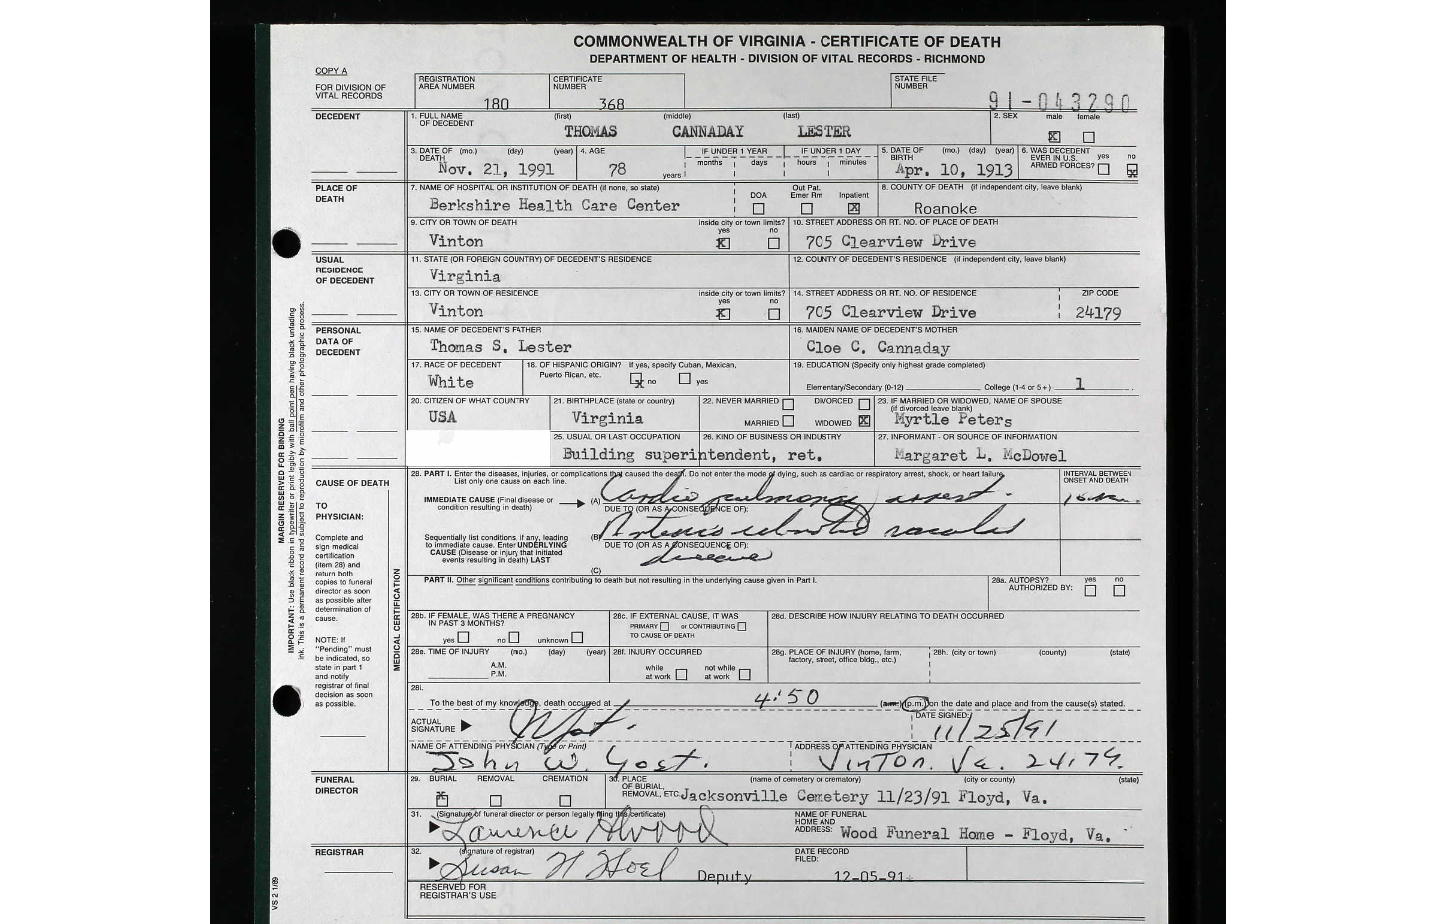 COMMONWEALTH OF VIRGINIA - CERTIFICATE OF DEATH
DEPARTMENT OF HEALTH - DIVISION OF VITAL RECORDS - RICHMOND
COPY A
FOR DIVISION OF VITAL RECORDS
REGISTRATION AREA NUMBER 180
CERTIFICATE NUMBER 368
STATE FILE NUMBER 91-043290
DECEDENT
1. FULL NAME OF DECEDENT (first) (middle) (last)
THOMAS CANNADAY LESTER
2. SEX male female
3. DATE OF DEATH (mo.) (day) (year)
Nov. 21, 1991
4. AGE 78 years
IF UNDER 1 YEAR months days
IF UNDER 1 DAY hours minutes
5. DATE OF BIRTH (mo.) (day) (year)
Apr. 10, 1913
6. WAS DECEDENT EVER IN U.S. ARMED FORCES? yes no
PLACE OF DEATH
7. NAME OF HOSPITAL OR INSTITUTION OF DEATH (if none, so state)
Berkshire Health Care Center
DOA Out Pat. Emer Rm Inpatient
8. COUNTY OF DEATH (if independent city, leave blank)
Roanoke
9. CITY OR TOWN OF DEATH inside city or town limits? yes no
Vinton
10. STREET ADDRESS OR RT. NO. OF PLACE OF DEATH
705 Clearview Drive
USUAL RESIDENCE OF DECEDENT
11. STATE (OR FOREIGN COUNTRY) OF DECEDENT'S RESIDENCE
Virginia
12. COUNTY OF DECEDENT'S RESIDENCE (if independent city, leave blank)
13. CITY OR TOWN OF RESIDENCE inside city or town limits? yes no
Vinton
14. STREET ADDRESS OR RT. NO. OF RESIDENCE ZIP CODE
705 Clearview Drive 24179
PERSONAL DATA OF DECEDENT
15. NAME OF DECEDENT'S FATHER
Thomas S. Lester
16. MAIDEN NAME OF DECEDENT'S MOTHER
Cloe C. Cannaday
17. RACE OF DECEDENT
White
18. OF HISPANIC ORIGIN? If yes, specify Cuban, Mexican, Puerto Rican, etc. no yes
19. EDUCATION (Specify only highest grade completed)
Elementary/Secondary (0-12) College (1-4 or 5+) 1
20. CITIZEN OF WHAT COUNTRY
USA
21. BIRTHPLACE (state or country)
Virginia
22. NEVER MARRIED DIVORCED
MARRIED WIDOWED
23. IF MARRIED OR WIDOWED, NAME OF SPOUSE (if divorced leave blank)
Myrtle Peters
25. USUAL OR LAST OCCUPATION
26. KIND OF BUSINESS OR INDUSTRY
Building superintendent, ret.
27. INFORMANT - OR SOURCE OF INFORMATION
Margaret L. McDowel
CAUSE OF DEATH
TO PHYSICIAN:
Complete and
sign medical
certification
(item 28) and
return both
copies to funeral
director as soon
as possible after
determination of
cause.
NOTE: If
"Pending" must
be indicated, so
state in part 1
and notify
registrar of final
decision as soon
as possible.
MEDICAL CERTIFICATION
MARGIN RESERVED FOR BINDING
IMPORTANT: Use black ribbon in typewriter or print legibly with ball point pen having black unfading
ink. This is a permanent record and subject to reproduction by microfilm and other photographic process.
28. PART I. Enter the diseases, injuries, or complications that caused the death. Do not enter the mode of dying, such as cardiac or respiratory arrest, shock, or heart failure.
List only one cause on each line.
INTERVAL BETWEEN ONSET AND DEATH
IMMEDIATE CAUSE (Final disease or condition resulting in death) (A) Cardio pulmonary arrest.
DUE TO (OR AS A CONSEQUENCE OF):
Sequentially list conditions, if any, leading to immediate cause. Enter UNDERLYING CAUSE (Disease or injury that initiated events resulting in death) LAST
(B)
DUE TO (OR AS A CONSEQUENCE OF):
disease
(C)
PART II. Other significant conditions contributing to death but not resulting in the underlying cause given in Part I.
28a. AUTOPSY? AUTHORIZED BY: yes no
28b. IF FEMALE, WAS THERE A PREGNANCY IN PAST 3 MONTHS?
yes no unknown
28c. IF EXTERNAL CAUSE, IT WAS
PRIMARY or CONTRIBUTING
TO CAUSE OF DEATH
28d. DESCRIBE HOW INJURY RELATING TO DEATH OCCURRED
28e. TIME OF INJURY (mo.) (day) (year)
A.M.
P.M.
28f. INJURY OCCURRED
while at work not while at work
28g. PLACE OF INJURY (home, farm, factory, street, office bldg., etc.)
28h. (city or town) (county) (state)
28i.
To the best of my knowledge, death occurred at 4:50 (a.m.) (p.m.) on the date and place and from the cause(s) stated.
ACTUAL SIGNATURE
DATE SIGNED: 11/25/91
NAME OF ATTENDING PHYSICIAN (Type or Print)
John W. Yost.
ADDRESS OF ATTENDING PHYSICIAN
Vinton. Va. 24179.
FUNERAL DIRECTOR
29. BURIAL REMOVAL CREMATION
30. PLACE OF BURIAL, REMOVAL, ETC. (name of cemetery or crematory) (city or county) (state)
Jacksonville Cemetery 11/23/91 Floyd, Va.
31. (Signature of funeral director or person legally filing this certificate)
NAME OF FUNERAL HOME AND ADDRESS: Wood Funeral Home - Floyd, Va.
REGISTRAR
32. (signature of registrar)
Susan N Hoel Deputy
DATE RECORD FILED: 12-05-91
RESERVED FOR REGISTRAR'S USE
VS 2 1/89